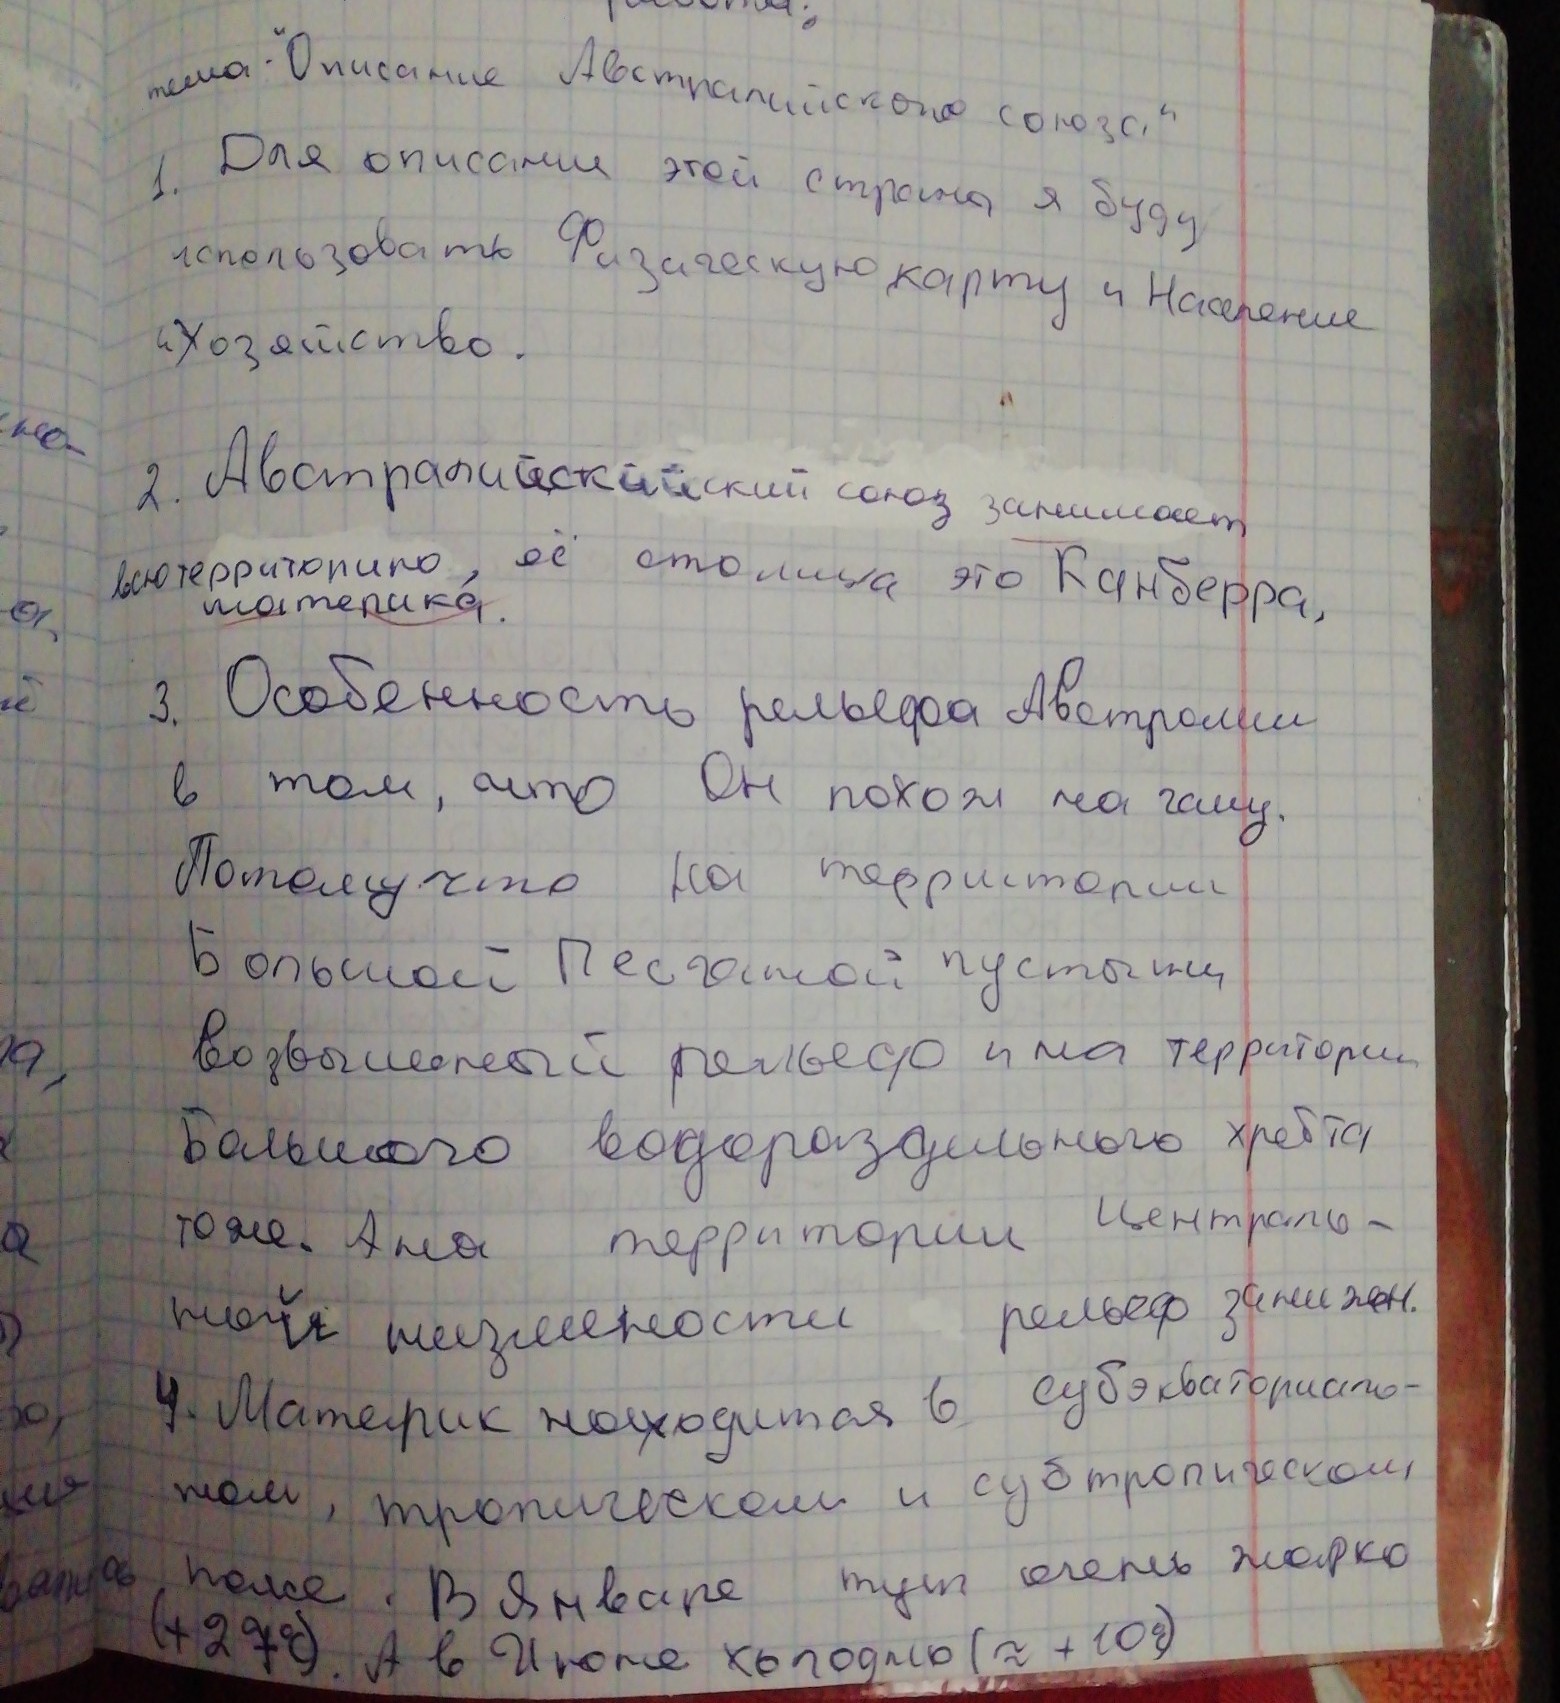 работа:
тема: "Описание Австралийского союза"
1. Для описание этой страна я буду
использовать Физическую карту и Население
и Хозяйство.
2. Австралийский союз занимает
всю территорию, её столица это Канберра,
материка.
3. Особенность рельефа Австралии
в том, что Он похож на чашу.
Потому что на территории
Большой Песчаной пустыни
возвышеный рельеф и на территории
Большого водораздельного хребта
тоже. А на территории Централь-
ной низменности рельеф занижен.
4. Материк находится в субэкваториаль-
ном, тропическом и субтропическом
поясе. В Январе тут очень жарко
(+27°). А в Июне холодно (≈ +10°)